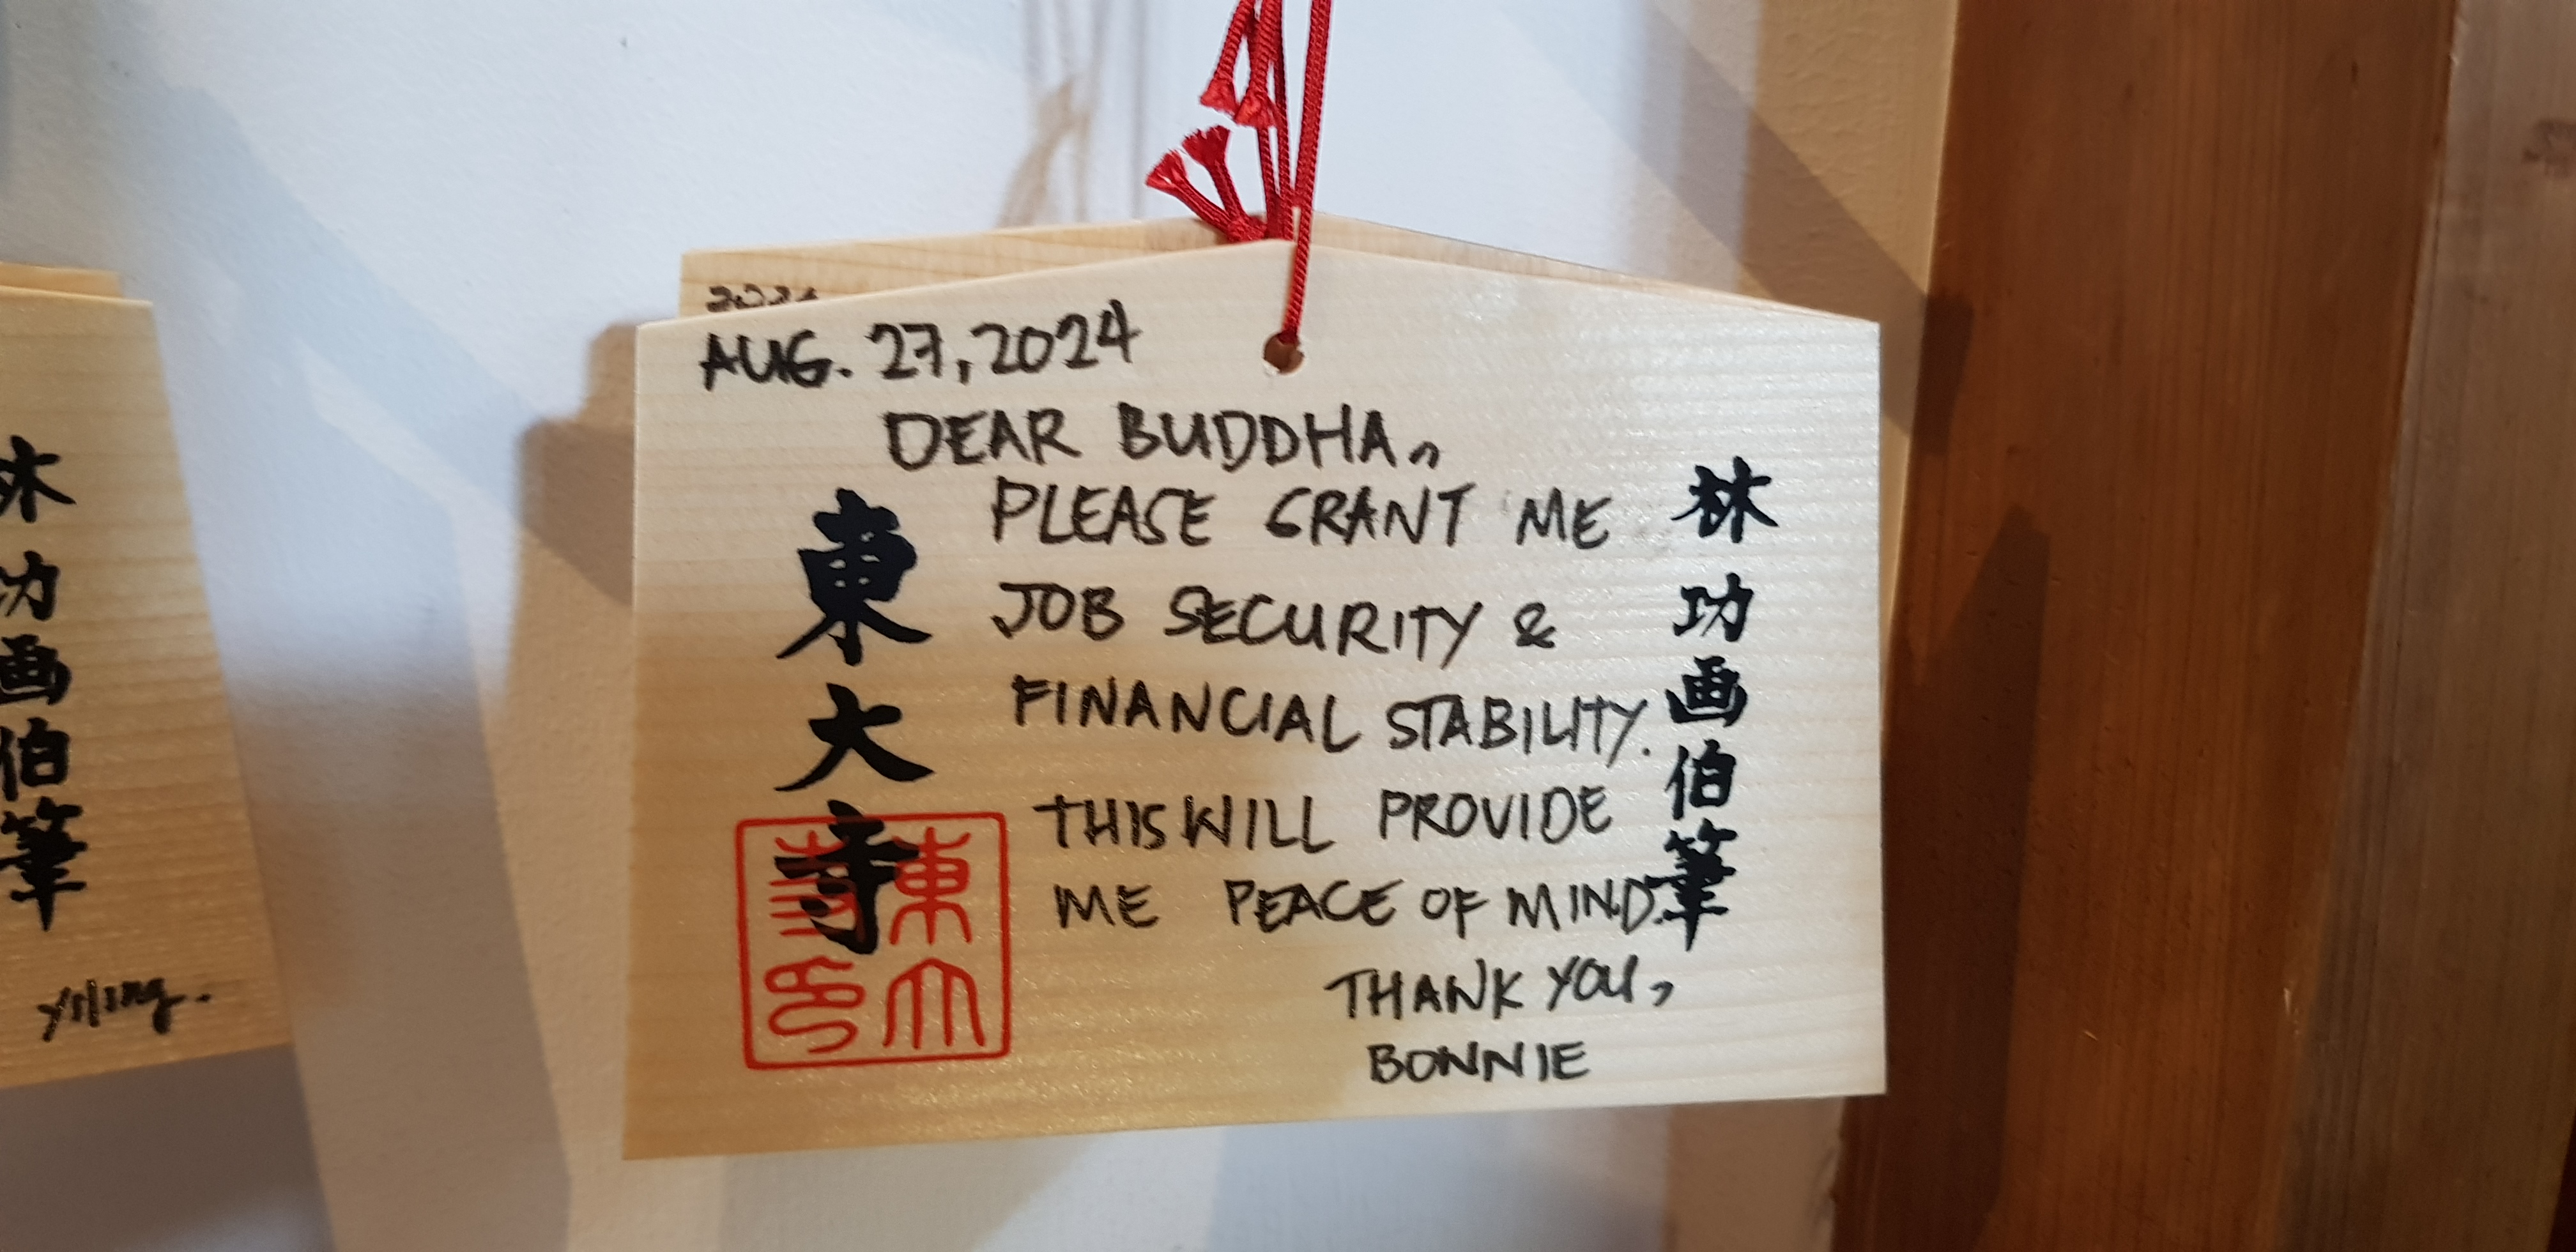 AUG. 27, 2024
DEAR BUDDHA,
PLEASE GRANT ME
JOB SECURITY &
FINANCIAL STABILITY.
THIS WILL PROVIDE
ME PEACE OF MIND.
THANK YOU,
BONNIE
林功画伯筆
東大寺
東大寺印
林功画伯筆
yiling.